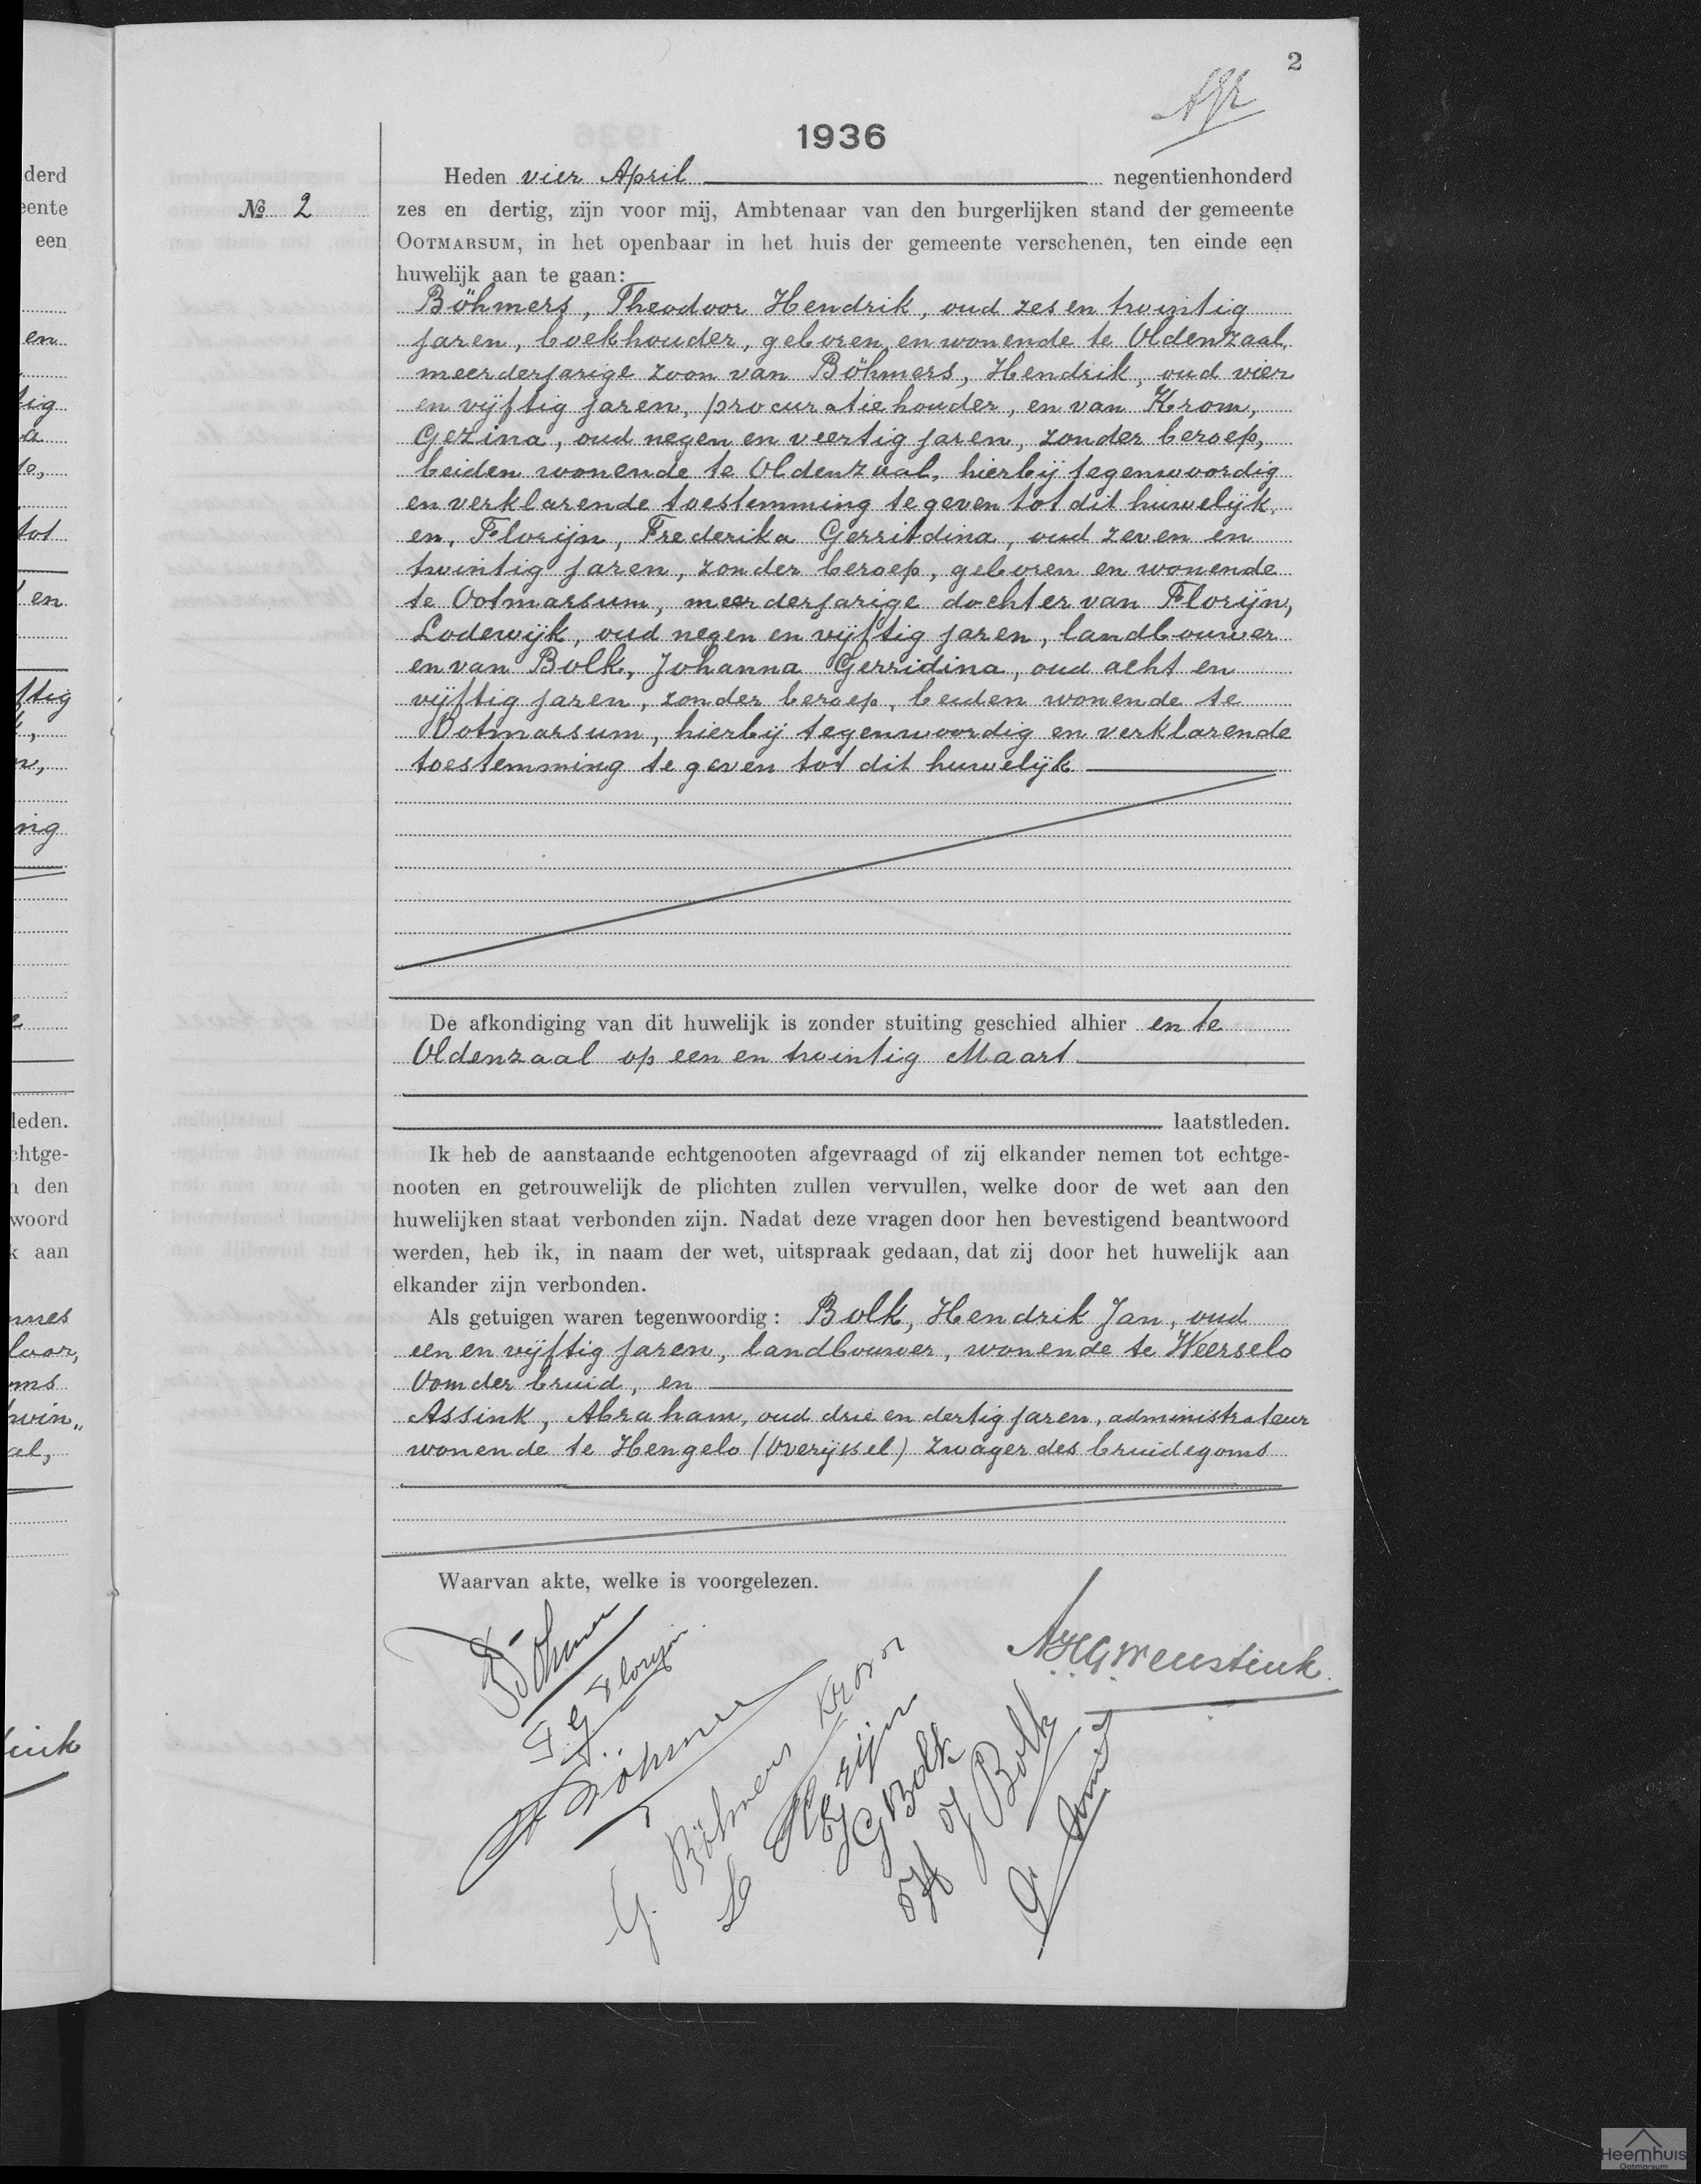 2
1936
Heden vier April negentienhonderd
№ 2
zes en dertig, zijn voor mij, Ambtenaar van den burgerlijken stand der gemeente
OOTMARSUM, in het openbaar in het huis der gemeente verschenen, ten einde een
huwelijk aan te gaan:
Böhmers, Theodoor Hendrik, oud zes en twintig
jaren, boekhouder, geboren en wonende te Oldenzaal,
meerderjarige zoon van Böhmers, Hendrik, oud vier
en vijftig jaren, procuratiehouder, en van Krom,
Gezina, oud negen en veertig jaren, zonder beroep,
beiden wonende te Oldenzaal, hierbij tegenwoordig
en verklarende toestemming te geven tot dit huwelijk,
en, Florijn, Frederika Gerritdina, oud zeven en
twintig jaren, zonder beroep, geboren en wonende
te Ootmarsum, meerderjarige dochter van Florijn,
Lodewijk, oud negen en vijftig jaren, landbouwer
en van Bolk, Johanna Gerridina, oud acht en
vijftig jaren, zonder beroep, beiden wonende te
Ootmarsum, hierbij tegenwoordig en verklarende
toestemming te geven tot dit huwelijk
De afkondiging van dit huwelijk is zonder stuiting geschied alhier en te
Oldenzaal op een en twintig Maart
laatstleden.
Ik heb de aanstaande echtgenooten afgevraagd of zij elkander nemen tot echtge-
nooten en getrouwelijk de plichten zullen vervullen, welke door de wet aan den
huwelijken staat verbonden zijn. Nadat deze vragen door hen bevestigend beantwoord
werden, heb ik, in naam der wet, uitspraak gedaan, dat zij door het huwelijk aan
elkander zijn verbonden.
Als getuigen waren tegenwoordig: Bolk, Hendrik Jan, oud
een en vijftig jaren, landbouwer, wonende te Weerselo
Oom der bruid, en
Assink, Abraham, oud drie en dertig jaren, administrateur
wonende te Hengelo (Overijssel) zwager des bruidegoms
Waarvan akte, welke is voorgelezen.
Böhmers
F. G. Florijn.
H Böhmers
G. Böhmers Krom
L Florijn
J G Bolk
H J Bolk
derd
eente
een
en
tig
a
tot
en
ftig
ing
leden.
chtge-
den
woord
k aan
nnes
oms
al,
ink
Heemhuis
Ootmarsum